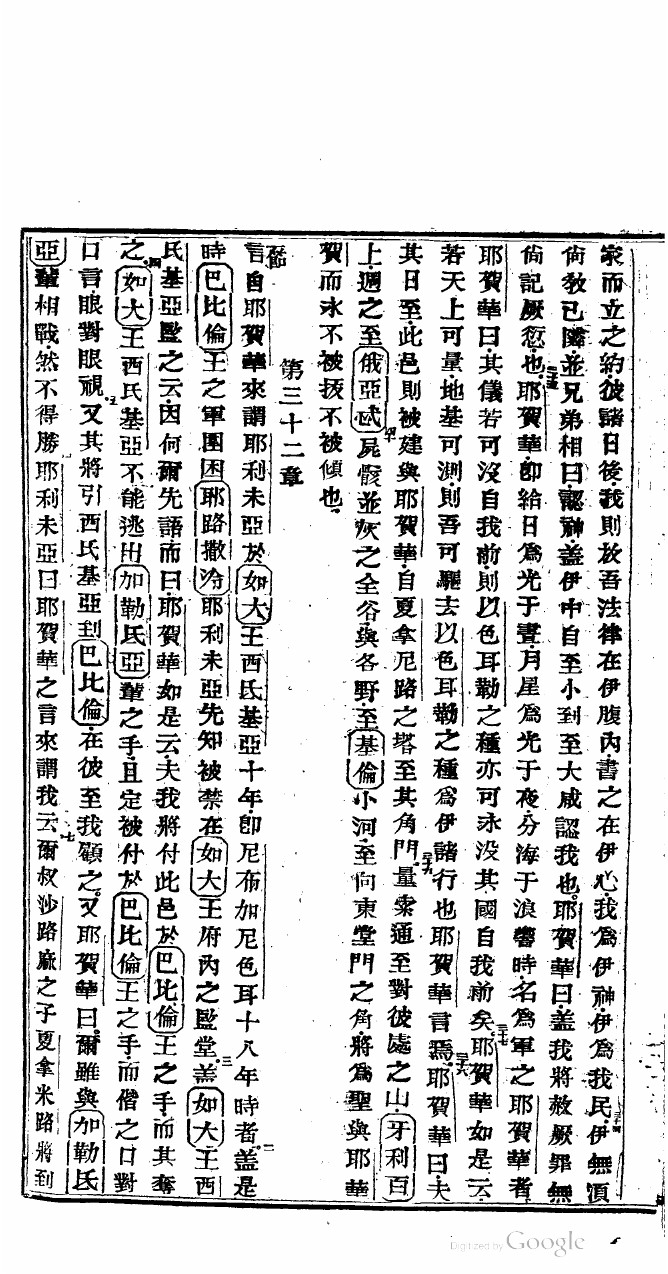 家而立之約彼諸日後我則放吾法律在伊腹內書之在伊心我爲伊神伊爲我民伊無須
三十四
尙教已鄰並兄弟相曰認神蓋伊中自至小到至大咸認我也耶賀華曰蓋我將赦厥罪無
尙記厥愆也耶賀華卽給日爲光于晝月星爲光于夜分海于浪響時名爲軍之耶賀華者
三十五
耶賀華曰其儀若可沒自我前則以色耳勒之種亦可永沒其國自我前矣耶賀華如是云
三十七
若天上可量地基可測則吾可驅去以色耳勒之種爲伊諸行也耶賀華言焉耶賀華曰夫
其日至此邑則被建與耶賀華自夏拿尼路之塔至其角門量索通至對彼處之山牙利百
上週之至俄亞忒屍骸並灰之全谷與各野至基倫小河至向東堂門之角將爲聖與耶華
四十
賀而永不被拔不被傾也
第三十二章
言自耶賀華來謂耶利未亞於如大王西氏基亞十年卽尼布加尼色耳十八年時者蓋是
二
時巴比倫王之軍圍困耶路撒冷耶利未亞先知被禁在如大王府內之監堂蓋如大王西
三
氏基亞監之云因何爾先語而曰耶賀華如是云夫我將付此邑於巴比倫王之手而其奪
之如大王西氏基亞不能逃出加勒氏亞輩之手且定被付於巴比倫王之手而偕之口對
四
口言眼對眼視又其將引西氏基亞到巴比倫在彼至我顧之又耶賀華曰爾雖與加勒氏
五
亞輩相戰然不得勝耶利未亞曰耶賀華之言來謂我云爾叔沙路麻之子夏拿米路將到
七
Digitized by Google